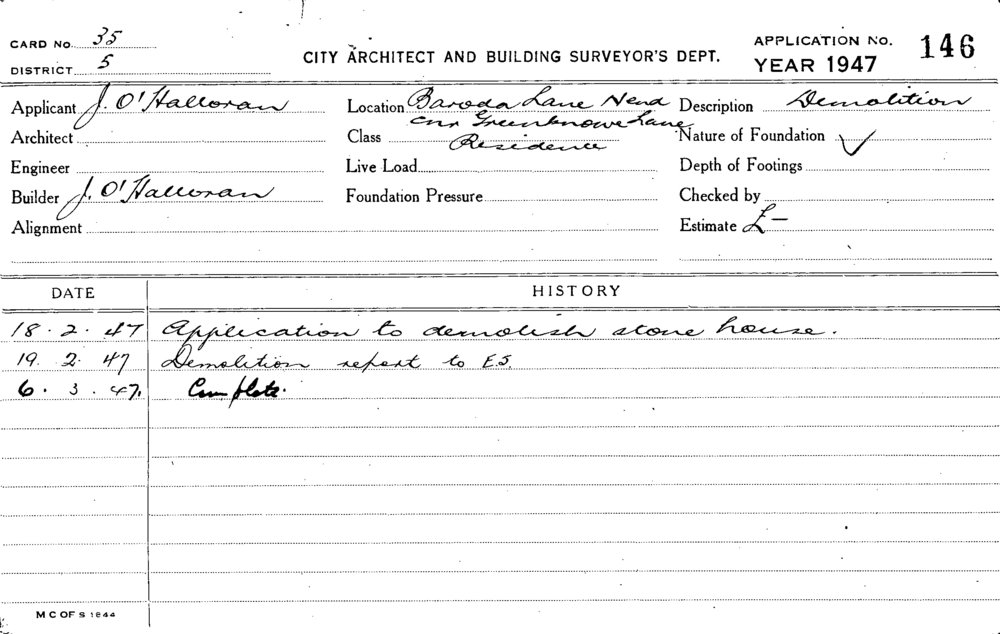 CARD No. 35
DISTRICT 5
CITY ARCHITECT AND BUILDING SURVEYOR'S DEPT.
APPLICATION No. 146
YEAR 1947
Applicant J. O'Halloran
Architect
Engineer
Builder J. O'Halloran
Alignment
Location Baroda Lane Nend
cnr Greenknowe Lane
Class Residence
Live Load
Foundation Pressure
Description Demolition
Nature of Foundation
Depth of Footings
Checked by
Estimate £ —
DATE HISTORY
18 . 2 . 47 Application to demolish stone house.
19 . 2 . 47 Demolition report to E.S.
6 . 3 . 47. Complete.
M C OF S 1844